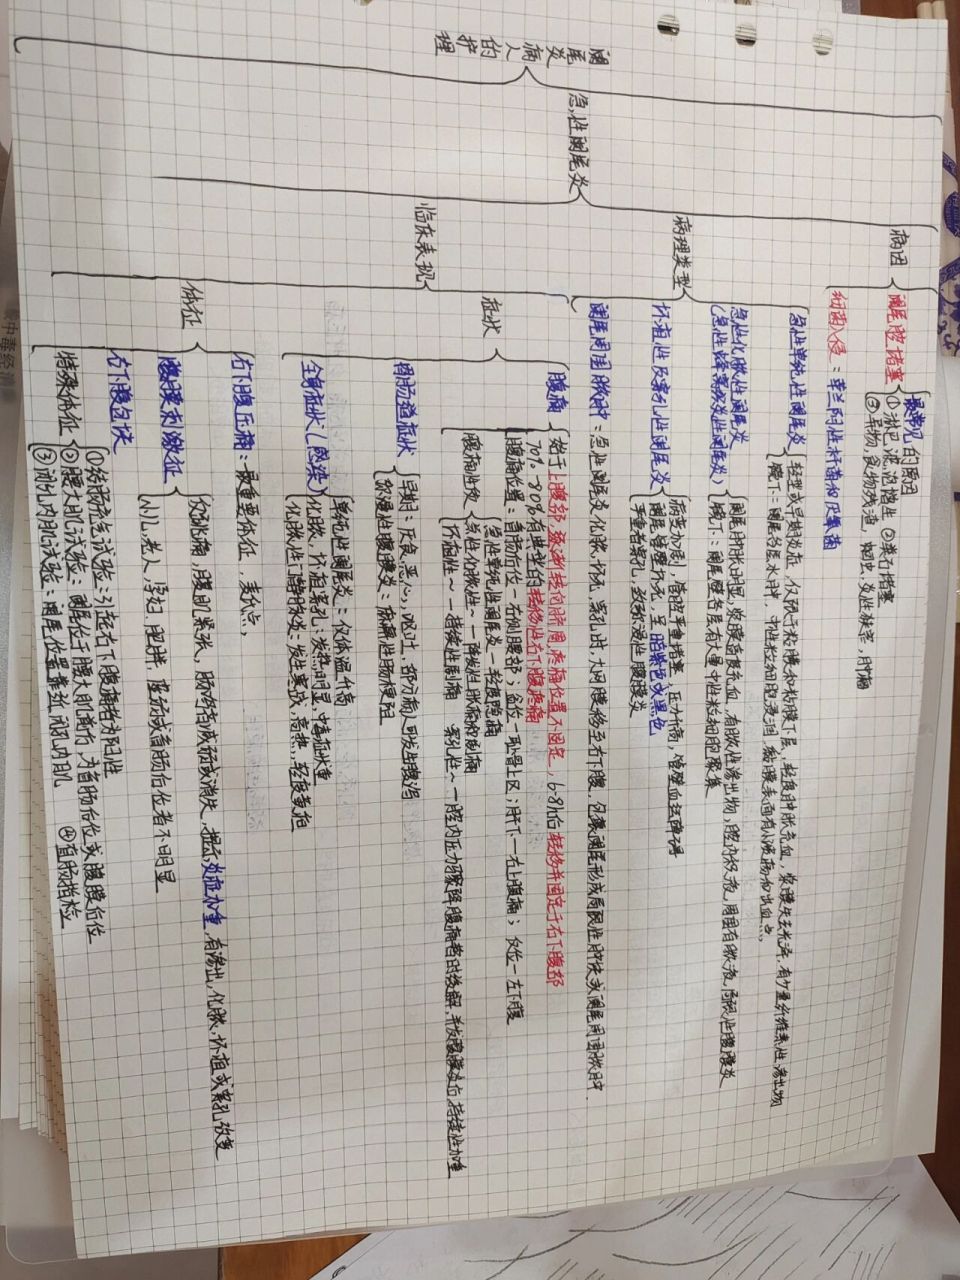 阑尾炎病人的护理
急性阑尾炎
病因
阑尾腔堵塞
最常见的原因
①淋巴滤泡增生 ②粪石堵塞
③异物，食物残渣，蛔虫，炎性狭窄，肿瘤
细菌入侵：革兰阴性杆菌和厌氧菌
病理类型
急性单纯性阑尾炎
轻型或早期炎症，仅限于粘膜和粘膜下层，轻度肿胀充血，浆膜失去光泽，有少量纤维素性渗出物
镜下：阑尾各层水肿，中性粒细胞浸润，黏膜表面有小溃疡和出血点，
急性化脓性阑尾炎
(急性蜂窝织炎性阑尾炎)
阑尾肿胀明显，浆膜高度充血，有脓性渗出物，腔内积液，周围有脓液，局限性腹膜炎
镜下：阑尾壁各层有大量中性粒细胞聚集
坏疽性及穿孔性阑尾炎
病变加剧，管腔严重堵塞，压力升高，管壁血运障碍
阑尾管壁坏死，呈暗紫色或黑色
严重者穿孔，致弥漫性腹膜炎
阑尾周围脓肿：急性阑尾炎化脓、坏死、穿孔时，大网膜移至右下腹，包裹阑尾形成局限性脓块或阑尾周围脓肿．
临床表现
症状
腹痛
始于上腹部，逐渐转向脐周，疼痛位置不固定，6-8h后转移并固定于右下腹部
70%-80%有典型的转移性右下腹疼痛
腹痛位置：盲肠后位—右侧腰部；盆位—耻骨上区；肝下—右上腹痛；反位—左下腹
腹痛性质
急性单纯性阑尾炎—轻度隐痛
急性化脓性~—阵发性胀痛和剧痛
坏疽性~—持续性剧痛 穿孔性~—腔内压力骤降腹痛暂时缓解，并发腹膜炎后，持续性加重
胃肠道症状
早期：厌食，恶心，呕吐，部分病人可发生腹泻
弥漫性腹膜炎：麻痹性肠梗阻
全身症状(感染)
单纯性阑尾炎：仅体温升高
化脓、坏疽穿孔：发热明显，中毒症状重
化脓性门静脉炎：发生寒战，高热，轻度黄疸
体征
右下腹压痛：最重要体征，麦氏点，
腹膜刺激征
反跳痛，腹肌紧张，肠鸣音减弱或消失，提示炎症加重，有渗出，化脓，坏疽或穿孔改变
小儿，老人，孕妇，肥胖，虚弱或盲肠后位者不明显
右下腹包块
特殊体征
①结肠充气试验：引起右下腹痛者为阳性
②腰大肌试验：阑尾位于腰大肌前方，为盲肠后位或腹膜后位
③闭孔内肌试验：阑尾位置靠近闭孔内肌 ④直肠指检